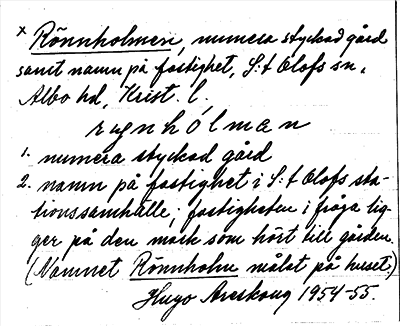 x Rönnholmen, numera styckad gård
samt namn på fastighet, S:t Olofs sn,
Albo hd, Krist. l.
rønhólman
1. numera styckad gård
2. namn på fastighet i S:t Olofs sta-
tionssamhälle; fastigheten i fråga lig-
ger på den mark som hört till gården.
(Namnet Rönnholm målat på huset.)
Hugo Areskoug 1954-55.